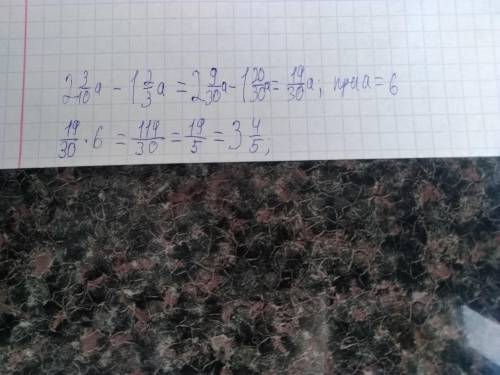 2 3/10 a - 1 2/3 a = 2 9/30 a - 1 20/30 a = 19/30 a; при a = 6
19/30 · 6 = 114/30 = 19/5 = 3 4/5;